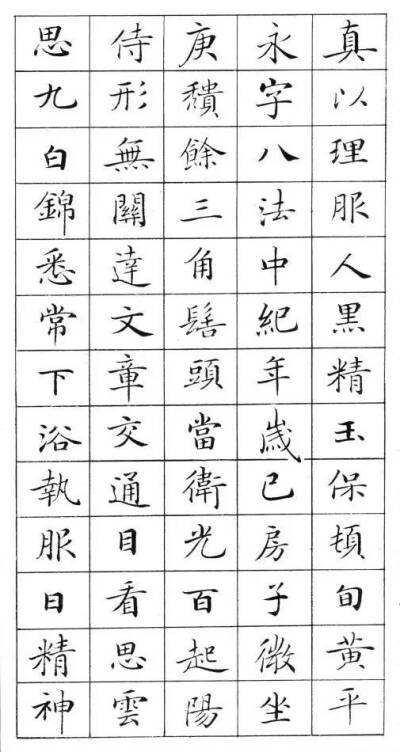 真以理服人黑精玉保頓旬黃平
永字八法中紀年歲已房子微坐
庚積餘三角髻頭當衛光百起陽
侍形無關達文章交通目看思雲
思九白錦悉常下浴執服日精神